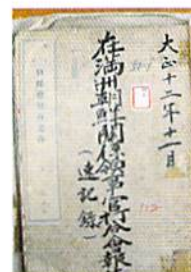 大正十二年十一月
在満州朝鮮関係領事官打合会報
（速記録）